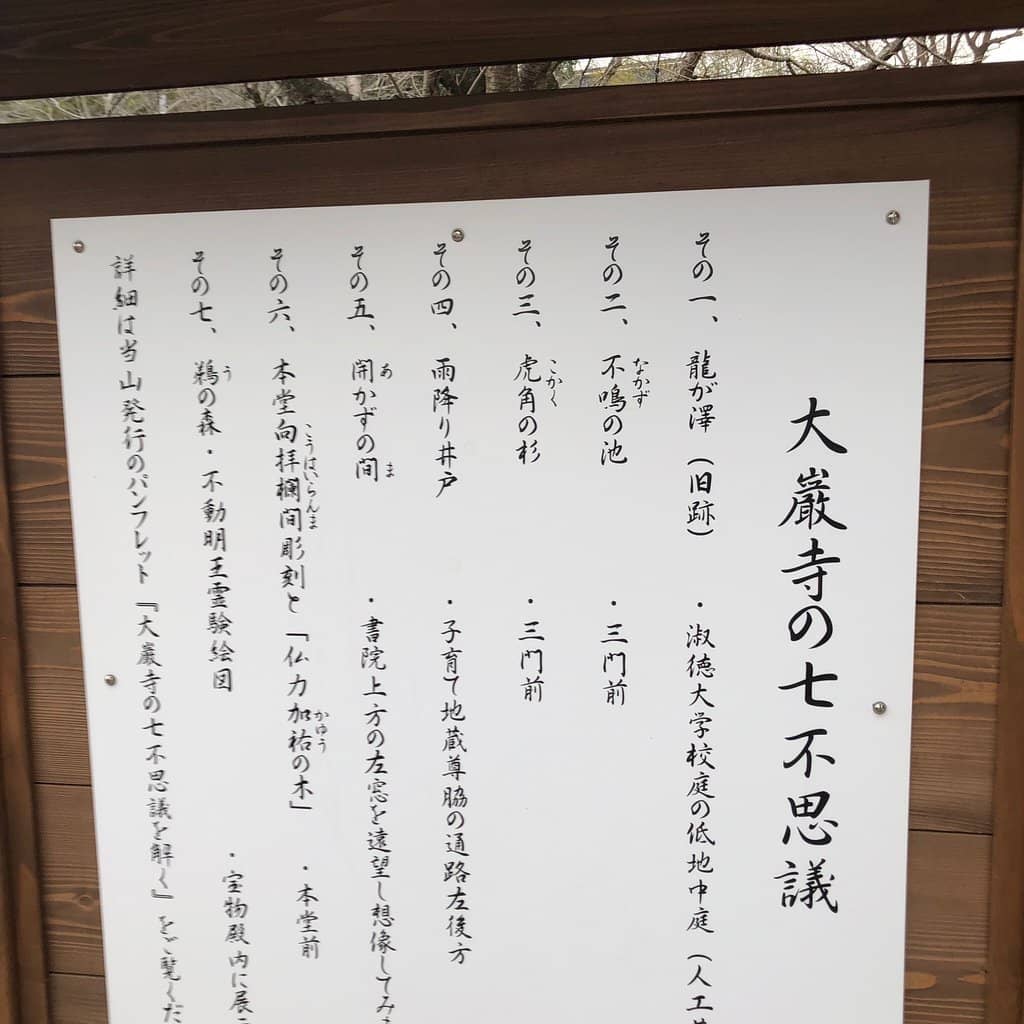 大巖寺の七不思議
その一、龍が澤（旧跡）・淑徳大学校庭の低地中庭（人工
その二、不鳴の池・三門前
なかず
その三、虎角の杉・三門前
こかく
その四、雨降り井戸・子育て地蔵尊脇の通路左後方
その五、開かずの間・書院上方の左窓を遠望し想像してみ
あ ま
その六、本堂向拝欄間彫刻と「仏力加祐の木」・本堂前
こうはいらんま かゆう
その七、鵜の森・不動明王霊験絵図・宝物殿内に展
う
詳細は当山発行のパンフレット『大巖寺の七不思議を解く』をご覧くだ